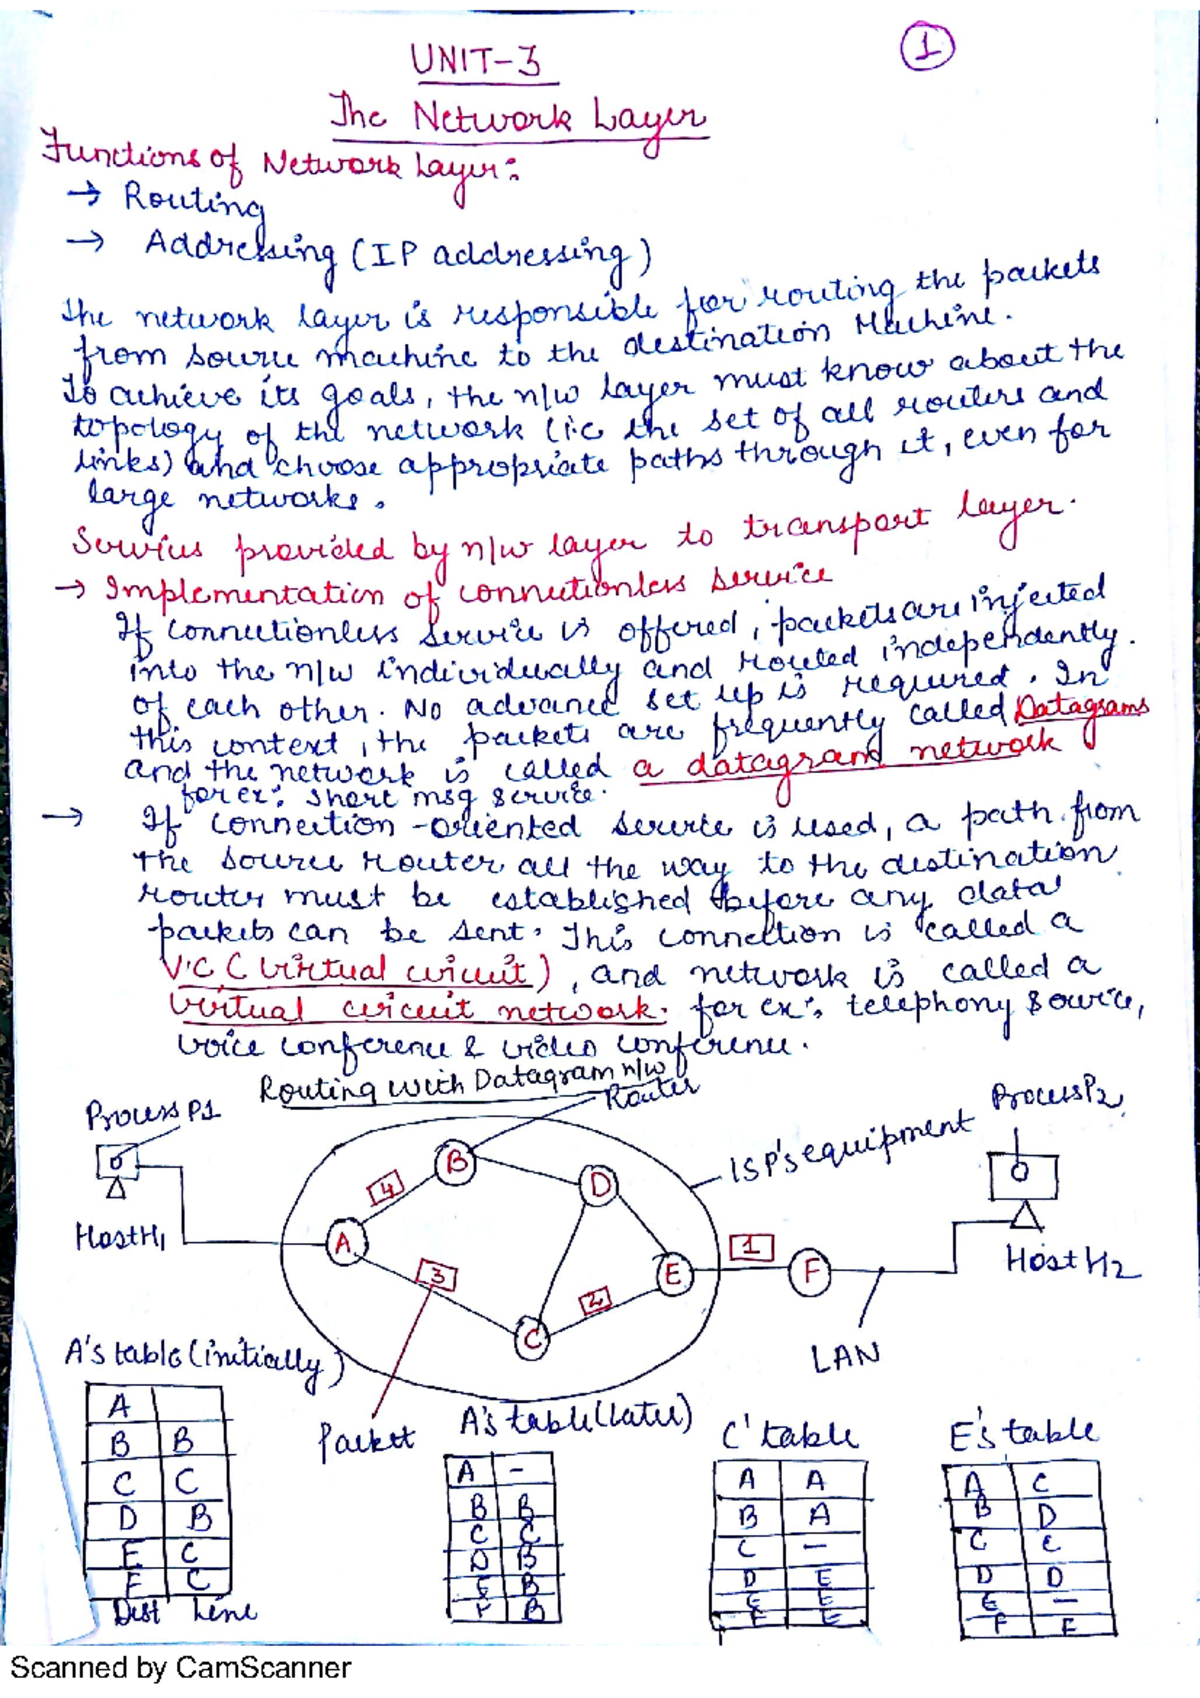 1
UNIT-3
The Network Layer
Functions of Network Layer:
→ Routing
→ Addressing (IP addressing)
The network layer is responsible for routing the packets
from source machine to the destination Machine.
To achieve its goals, the n/w layer must know about the
topology of the network (i.e the set of all routers and
links) and choose appropriate paths through it, even for
large networks.
Services provided by n/w layer to transport layer.
→ Implementation of connectionless service
If connectionless service is offered, packets are injected
into the n/w individually and routed independently.
of each other. No advanced set up is required. In
this context, the packets are frequently called Datagrams
and the network is called a datagram network
for ex: short msg service.
→ If connection-oriented service is used, a path from
the source router all the way to the destination
router must be established before any data
packets can be sent. This connection is called a
V.C (virtual circuit), and network is called a
virtual circuit network. for ex: telephony service,
voice conference & video conference.
Routing with Datagram n/w
Router
Process P1
Process P2
ISP's equipment
Host H1
A
B
C
D
E
F
4
3
2
1
Host H2
LAN
Packet
A's table (initially)
A
B B
C C
D B
E C
F C
Dest Line
A's table (Later)
A -
B B
C C
D B
E B
F B
C' table
A A
B A
C -
D E
E E
F E
E's table
A C
B D
C C
D D
E -
F F
Scanned by CamScanner